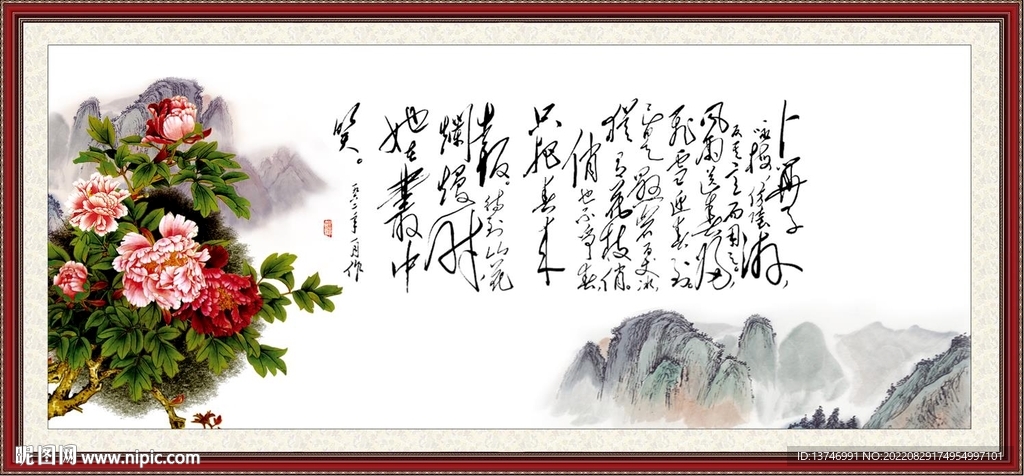 卜算子
咏梅 依陸游，
反其意而用之。
風雨送春歸，
飛雪迎春到。
已是懸崖百丈冰，
猶有花枝俏。
俏也不争春，
只把春來
報。待到山花
爛熳時
她在叢中
笑。
一九六二年一月作
昵图网 www.nipic.com
ID:13746991 NO:20220829174954997101